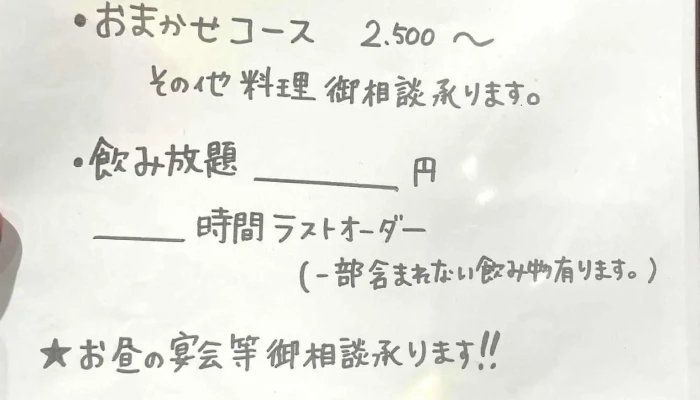 ・おまかせコース 2.500 〜
その他 料理 御相談 承ります。
・飲み放題 ______ 円
____ 時間 ラストオーダー
(一部含まれない飲み物有ります。)
★お昼の宴会等御相談承ります!!